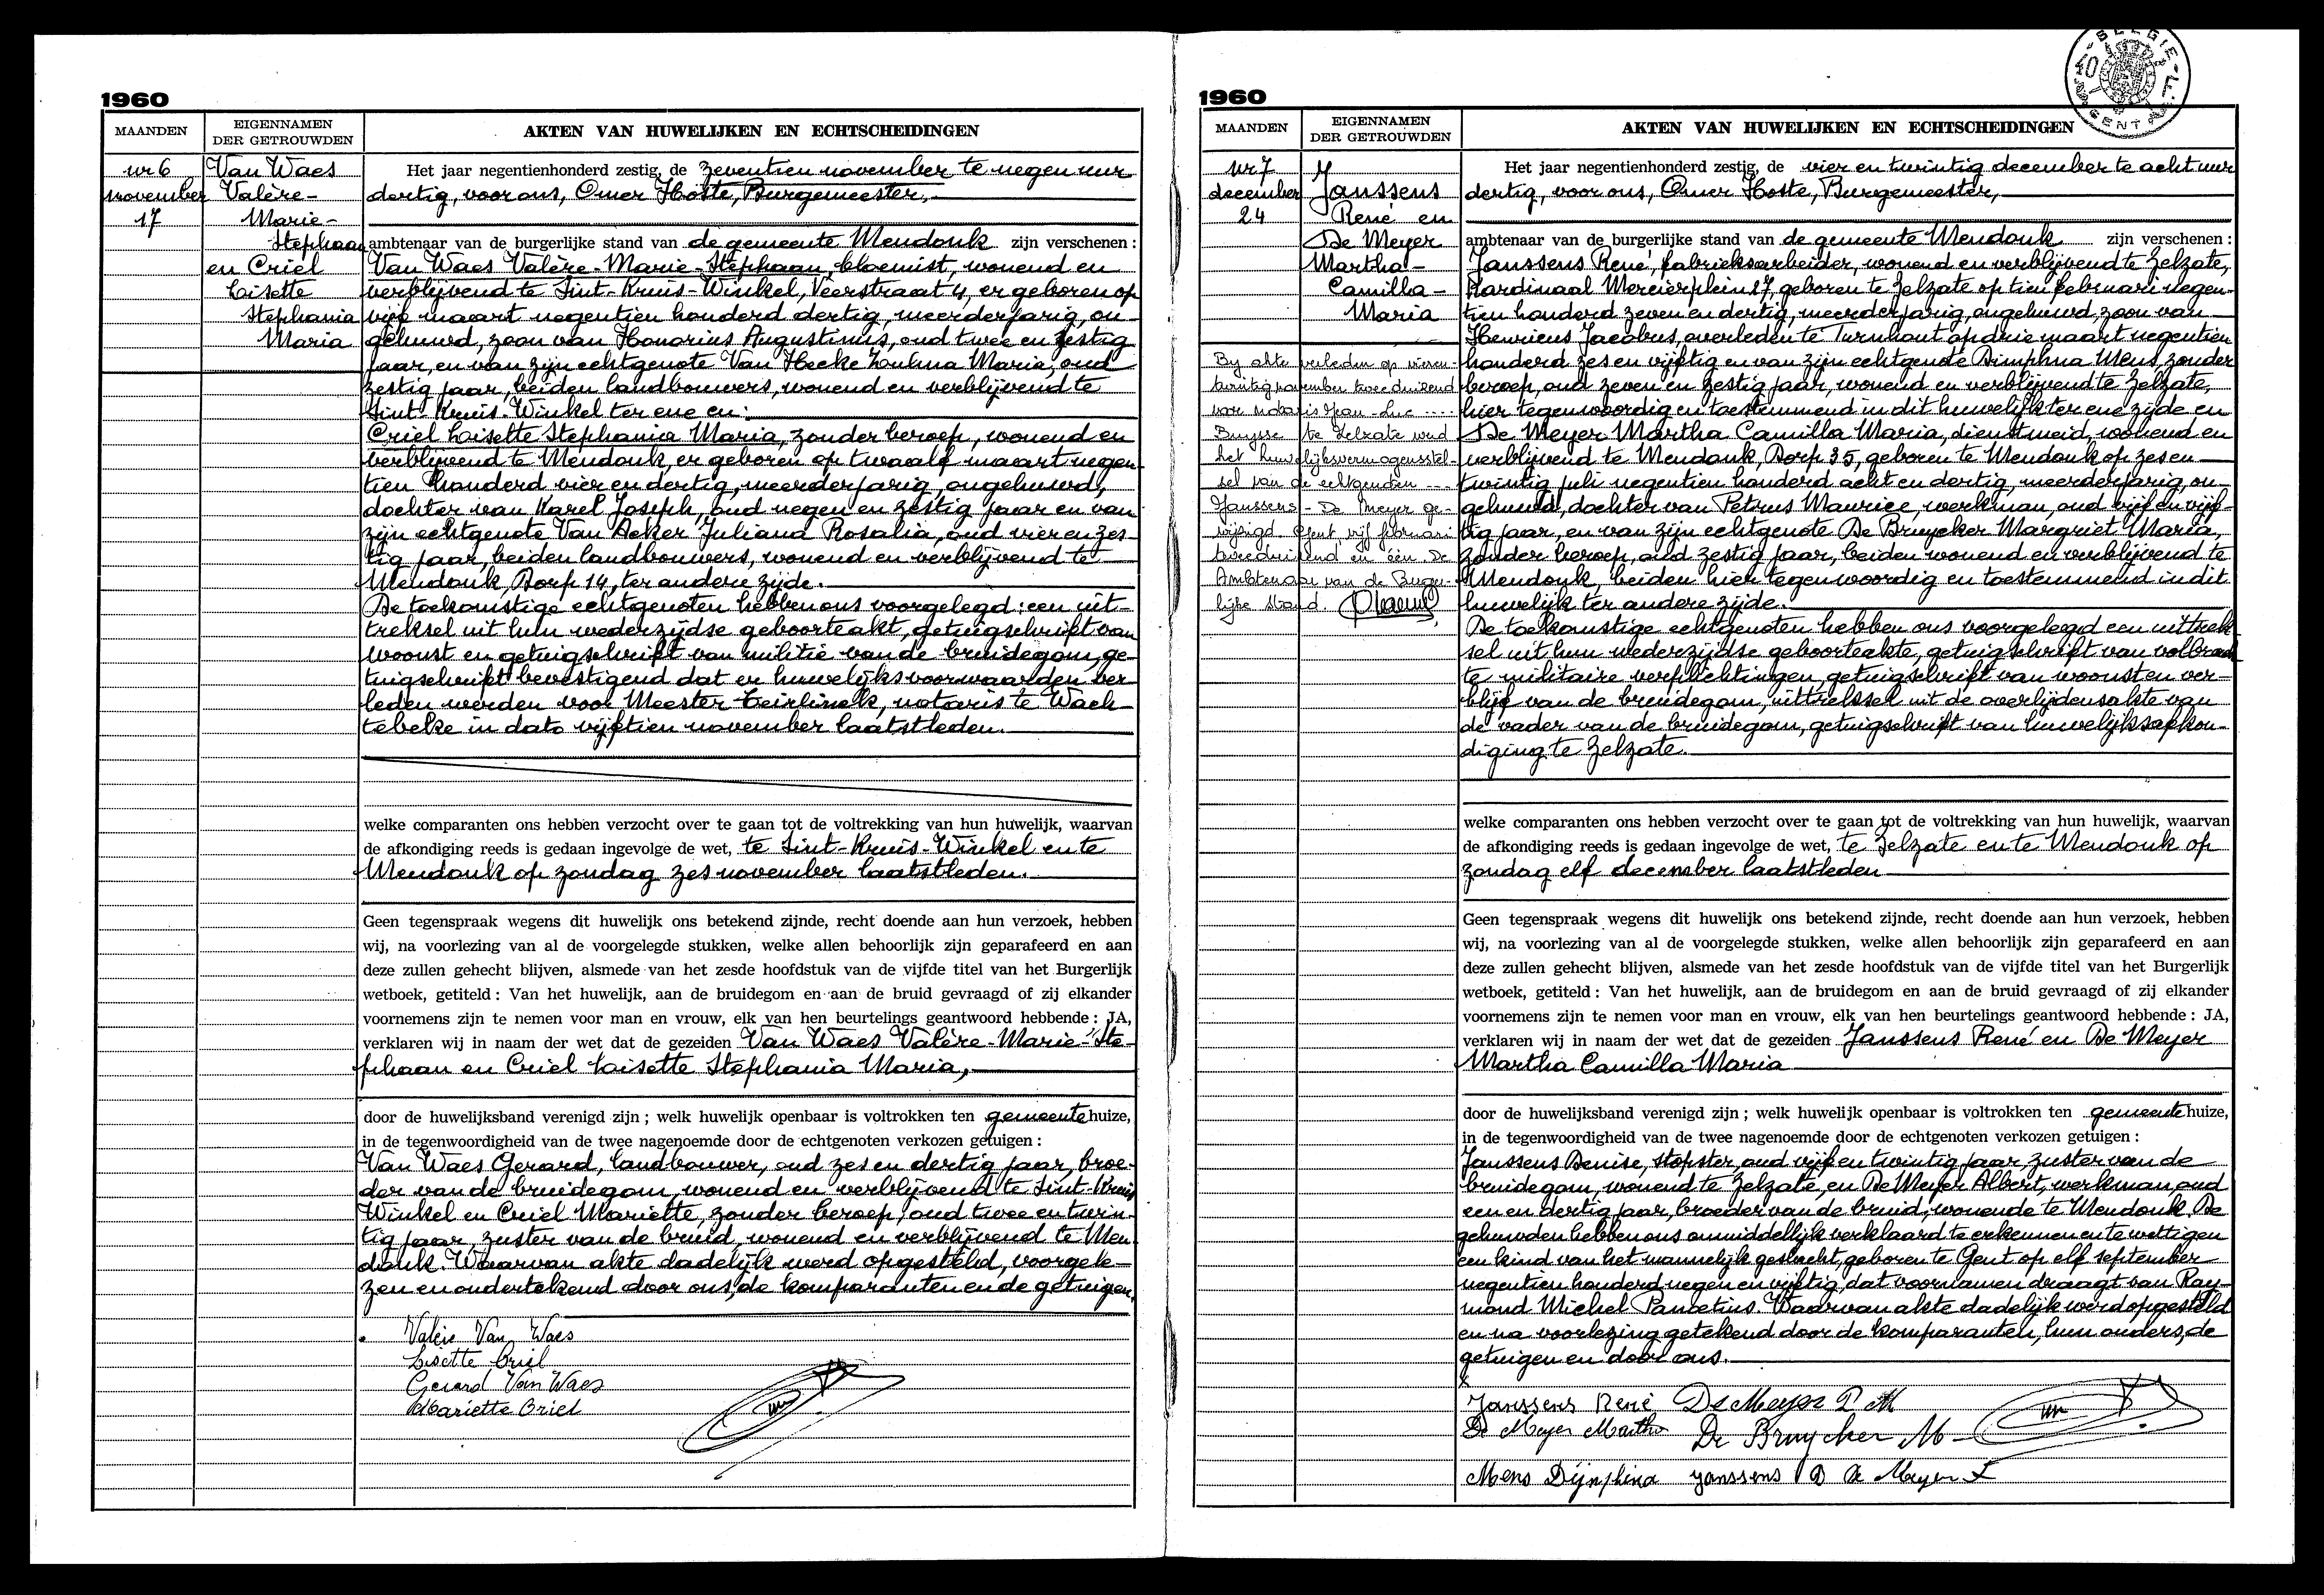 1960
MAANDEN
EIGENNAMEN
DER GETROUWDEN
AKTEN VAN HUWELIJKEN EN ECHTSCHEIDINGEN
nr 6
november
17
Van Waes
Valère-
Marie-
Stephaan
en Criel
Lisette
Stephania
Maria
Het jaar negentienhonderd zestig, de zeventien november te negen uur
dertig, voor ons, Omer Hoste, Burgemeester,
ambtenaar van de burgerlijke stand van de gemeente Mendonk zijn verschenen :
Van Waes Valère-Marie-Stephaan, bloemist, wonend en
verblijvend te Sint-Kruis-Winkel, Veerstraat 4, er geboren op
vijf maart negentien honderd dertig, meerderjarig, on-
gehuwd, zoon van Honorius Augustinus, oud twee en zestig
jaar, en van zijn echtgenote Van Hecke Maria, oud
zestig jaar, beiden landbouwers, wonend en verblijvend te
Sint-Kruis-Winkel ter ene en :
Criel Lisette Stephania Maria, zonder beroep, wonend en
verblijvend te Mendonk, er geboren op twaalf maart negen-
tien honderd vier en dertig, meerderjarig, ongehuwd,
dochter van Karel Joseph, oud negen en zestig jaar en van
zijn echtgenote Van Acker Juliana Rosalia, oud vier en zes-
tig jaar, beiden landbouwers, wonend en verblijvend te
Mendonk, Dorp 14, ter andere zijde.
De toekomstige echtgenoten hebben ons voorgelegd : een uit-
treksel uit hun wederzijdse geboorteakt, getuigschrift van
woonst en getuigschrift van militie van de bruidegom, ge-
tuigschrift bevestigend dat er huwelijksvoorwaarden ver-
leden werden voor Meester Teirlinck, notaris te Wach-
tebeke in dato vijftien november laatstleden.
welke comparanten ons hebben verzocht over te gaan tot de voltrekking van hun huwelijk, waarvan
de afkondiging reeds is gedaan ingevolge de wet, te Sint-Kruis-Winkel en te
Mendonk op zondag zes november laatstleden.
Geen tegenspraak wegens dit huwelijk ons betekend zijnde, recht doende aan hun verzoek, hebben
wij, na voorlezing van al de voorgelegde stukken, welke allen behoorlijk zijn geparafeerd en aan
deze zullen gehecht blijven, alsmede van het zesde hoofdstuk van de vijfde titel van het Burgerlijk
wetboek, getiteld : Van het huwelijk, aan de bruidegom en aan de bruid gevraagd of zij elkander
voornemens zijn te nemen voor man en vrouw, elk van hen beurtelings geantwoord hebbende : JA,
verklaren wij in naam der wet dat de gezeiden Van Waes Valère-Marie-Ste-
phaan en Criel Lisette Stephania Maria,
door de huwelijksband verenigd zijn ; welk huwelijk openbaar is voltrokken ten gemeentehuize,
in de tegenwoordigheid van de twee nagenoemde door de echtgenoten verkozen getuigen :
Van Waes Gerard, landbouwer, oud zes en dertig jaar, broe-
der van de bruidegom, wonend en verblijvend te Sint-Kruis
Winkel en Criel Mariette, zonder beroep, oud twee en twin-
tig jaar, zuster van de bruid, wonend en verblijvend te Men-
donk. Waarvan akte dadelijk werd opgesteld, voorgele-
zen en ondertekend door ons, de komparanten en de getuigen.
Valère Van Waes
Lisette Criel
Gerard Van Waes
Mariette Criel
1960
BELGIE
GENT
MAANDEN
EIGENNAMEN
DER GETROUWDEN
AKTEN VAN HUWELIJKEN EN ECHTSCHEIDINGEN
nr 7
december
24
Janssens
René en
De Meyer
Martha-
Camilla-
Maria
By akte verleden op vieren-
twintig november tweeduizend
voor notaris Jean-Luc
Buysse te Zelzate werd
het huwelijksvermogensstel-
sel van de echtgenoten
Janssens - De Meyer ge-
wijzigd. Gent vijf februari
tweeduizend en één. De
Ambtenaar van de Burger-
lijke stand.
Het jaar negentienhonderd zestig, de vier en twintig december te acht uur
dertig, voor ons, Omer Hoste, Burgemeester,
ambtenaar van de burgerlijke stand van de gemeente Mendonk zijn verschenen :
Janssens René, fabrieksarbeider, wonend en verblijvend te Zelzate,
Kardinaal Mercierplein 27, geboren te Zelzate op tien februari negen-
tien honderd zeven en dertig, meerderjarig, ongehuwd, zoon van
Henricus Jacobus, overleden te Turnhout op drie maart negentien
honderd zes en vijftig en van zijn echtgenote Dimphna Mens, zonder
beroep, oud zeven en zestig jaar, wonend en verblijvend te Zelzate,
hier tegenwoordig en toestemmend in dit huwelijk ter ene zijde en
De Meyer Martha Camilla Maria, dienstmeid, wonend en
verblijvend te Mendonk, Dorp 35, geboren te Mendonk op zes en
twintig juli negentien honderd acht en dertig, meerderjarig, on-
gehuwd, dochter van Petrus Maurice, werkman, oud vijf en vijf-
tig jaar, en van zijn echtgenote De Bruycker Margriet Maria,
zonder beroep, oud zestig jaar, beiden wonend en verblijvend te
Mendonk, beiden hier tegenwoordig en toestemmend in dit
huwelijk ter andere zijde.
De toekomstige echtgenoten hebben ons voorgelegd een uittrek-
sel uit hun wederzijdse geboorteakte, getuigschrift van volbrach-
te militaire verplichtingen, getuigschrift van woonst en ver-
blijf van de bruidegom, uittreksel uit de overlijdensakte van
de vader van de bruidegom, getuigschrift van huwelijksafkon-
diging te Zelzate.
welke comparanten ons hebben verzocht over te gaan tot de voltrekking van hun huwelijk, waarvan
de afkondiging reeds is gedaan ingevolge de wet, te Zelzate en te Mendonk op
zondag elf december laatstleden
Geen tegenspraak wegens dit huwelijk ons betekend zijnde, recht doende aan hun verzoek, hebben
wij, na voorlezing van al de voorgelegde stukken, welke allen behoorlijk zijn geparafeerd en aan
deze zullen gehecht blijven, alsmede van het zesde hoofdstuk van de vijfde titel van het Burgerlijk
wetboek, getiteld : Van het huwelijk, aan de bruidegom en aan de bruid gevraagd of zij elkander
voornemens zijn te nemen voor man en vrouw, elk van hen beurtelings geantwoord hebbende : JA,
verklaren wij in naam der wet dat de gezeiden Janssens René en De Meyer
Martha Camilla Maria
door de huwelijksband verenigd zijn ; welk huwelijk openbaar is voltrokken ten gemeentehuize,
in de tegenwoordigheid van de twee nagenoemde door de echtgenoten verkozen getuigen :
Janssens Denise, stopster, oud vijf en twintig jaar, zuster van de
bruidegom, wonend te Zelzate, en De Meyer Albert, werkman, oud
een en dertig jaar, broeder van de bruid, wonende te Mendonk. De
gehuwden hebben ons onmiddellijk verklaard te erkennen en te wettigen
een kind van het mannelijk geslacht, geboren te Gent op elf september
negentien honderd negen en vijftig, dat voornamen draagt van Ray-
mond Michel Pancetius. Waarvan akte dadelijk werd opgesteld
en na voorlezing getekend door de komparanten, hun ouders, de
getuigen en door ons.
Janssens René De Meyer P M
De Meyer Martha De Bruycker M
Mens Dijmphina Janssens D De Meyer